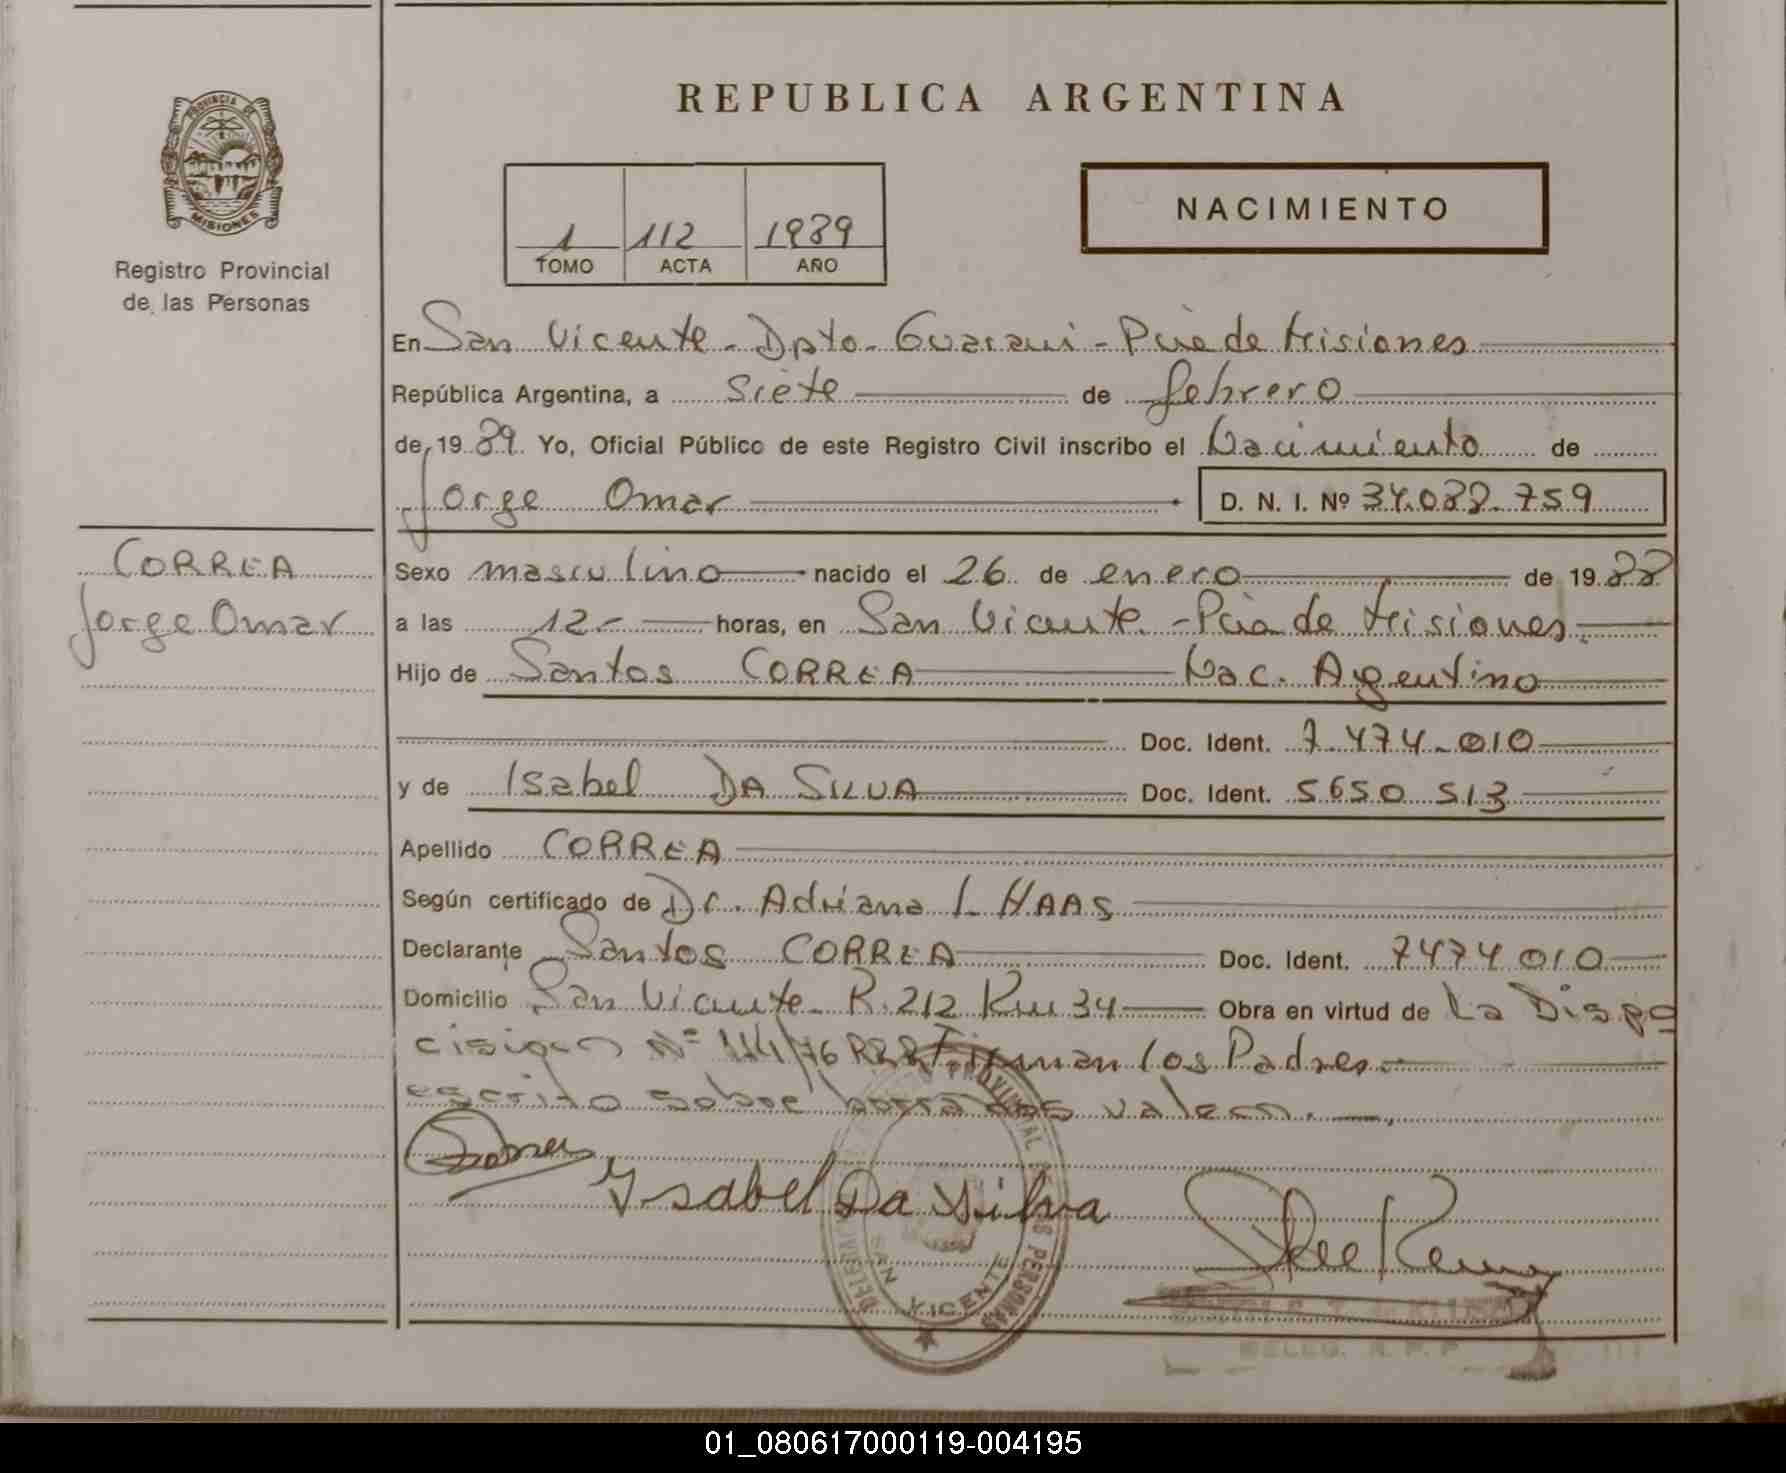 REPUBLICA ARGENTINA
PROVINCIA DE
MISIONES
Registro Provincial
de las Personas
1 112 1989
TOMO ACTA AÑO
NACIMIENTO
En San Vicente - Dpto - Guarani - Pcia de Misiones
República Argentina, a siete de febrero
de 1989. Yo, Oficial Público de este Registro Civil inscribo el Nacimiento de
Jorge Omar D. N. I. Nº 34.088.759
CORREA
Jorge Omar
Sexo masculino nacido el 26 de enero de 1988
a las 12- horas, en San Vicente - Pcia de Misiones.
Hijo de Santos CORREA Nac. Argentino
Doc. Ident. 7.474.010
y de Isabel DA SILVA Doc. Ident. 5650 513
Apellido CORREA
Según certificado de Dr. Adriana L HAAS
Declarante Santos CORREA Doc. Ident. 7474010
Domicilio San Vicente - R. 212 Km 34 Obra en virtud de La Dispo
cision Nº 114/76 RPP Firman los Padres.
escrito sobre borrados valen.
Isabel Da Silva
PROVINCIAL
LAS PERSONAS
SAN VICENTE
DELEG. R. P. P.
01_080617000119-004195